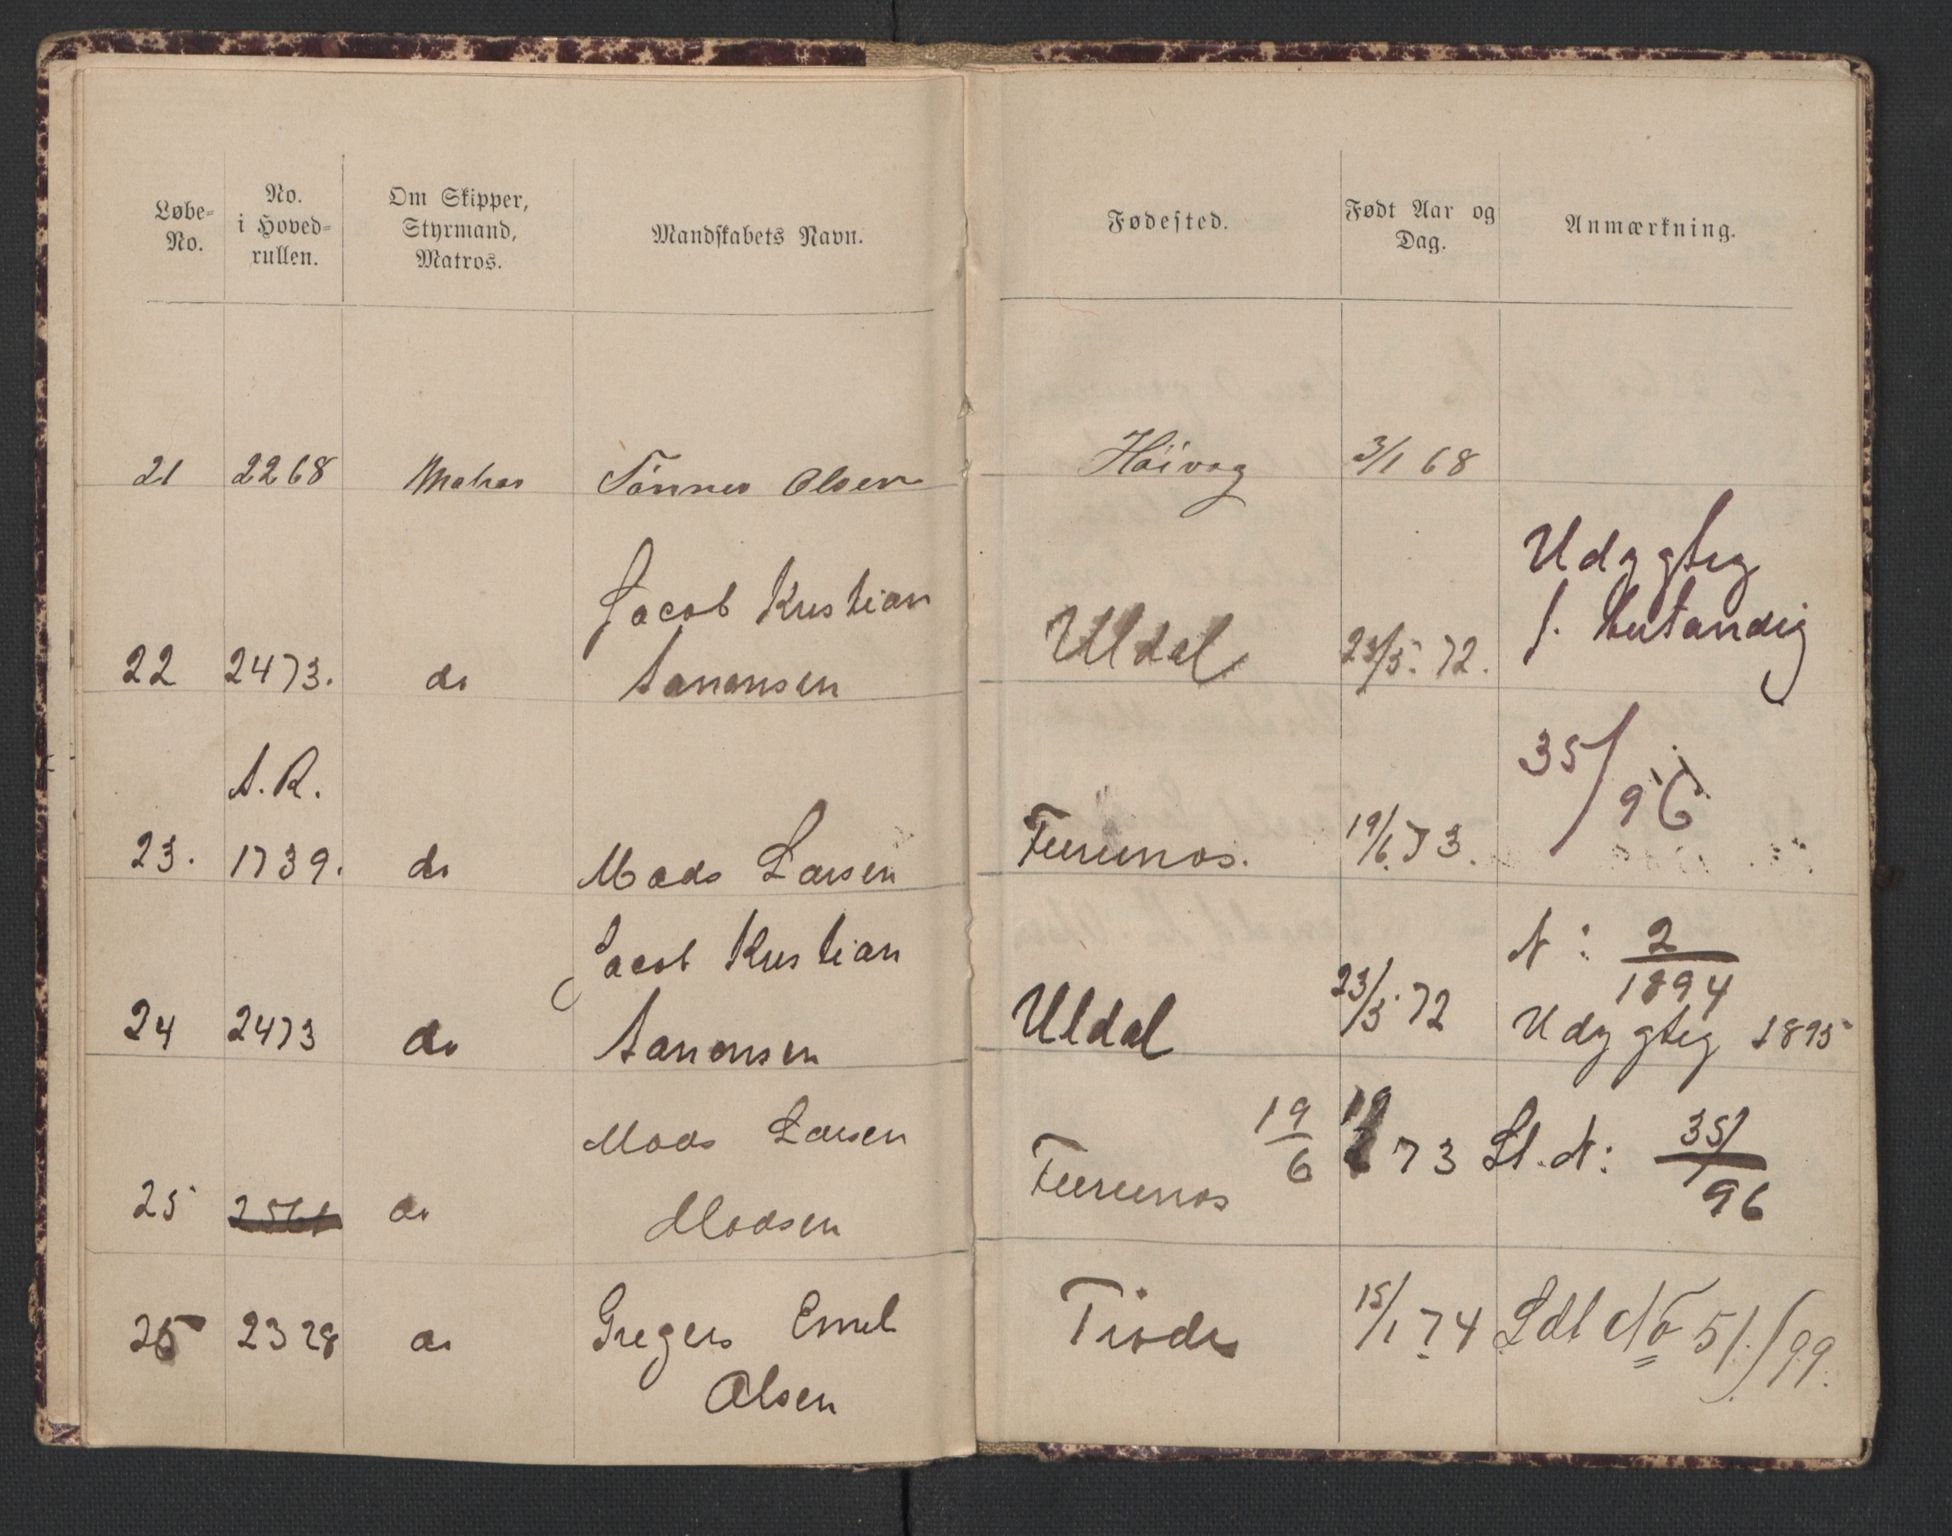 Løbe- No. | No. i Hoved- rullen. | Om Skipper, Styrmand, Matros. | Mandskabets Navn. | Fødested. | Født Aar og Dag. | Anmærkning.
21 2268 Matros Tönnes Olsen Höivog 3/1 68
Udygtig
f. bestandig
Jacob Kristian
22 2473. do Aanonsen Uldal 23/5. 72.
A. R.
35/96
23. 1739. do Mads Larsen Furunes. 19/6 73.
Jacob Kristian
N: 2/1894
24 2473 do Aanonsen Uldal 23/5 72 Udygtig 1895
Mads Larsen 19/6 19 73 Ll. N: 35/96
25 2561 do Madsen Furunes
26 2328 do Gregers Emil Tvede 15/1 74 Ldl No 51/99.
Olsen